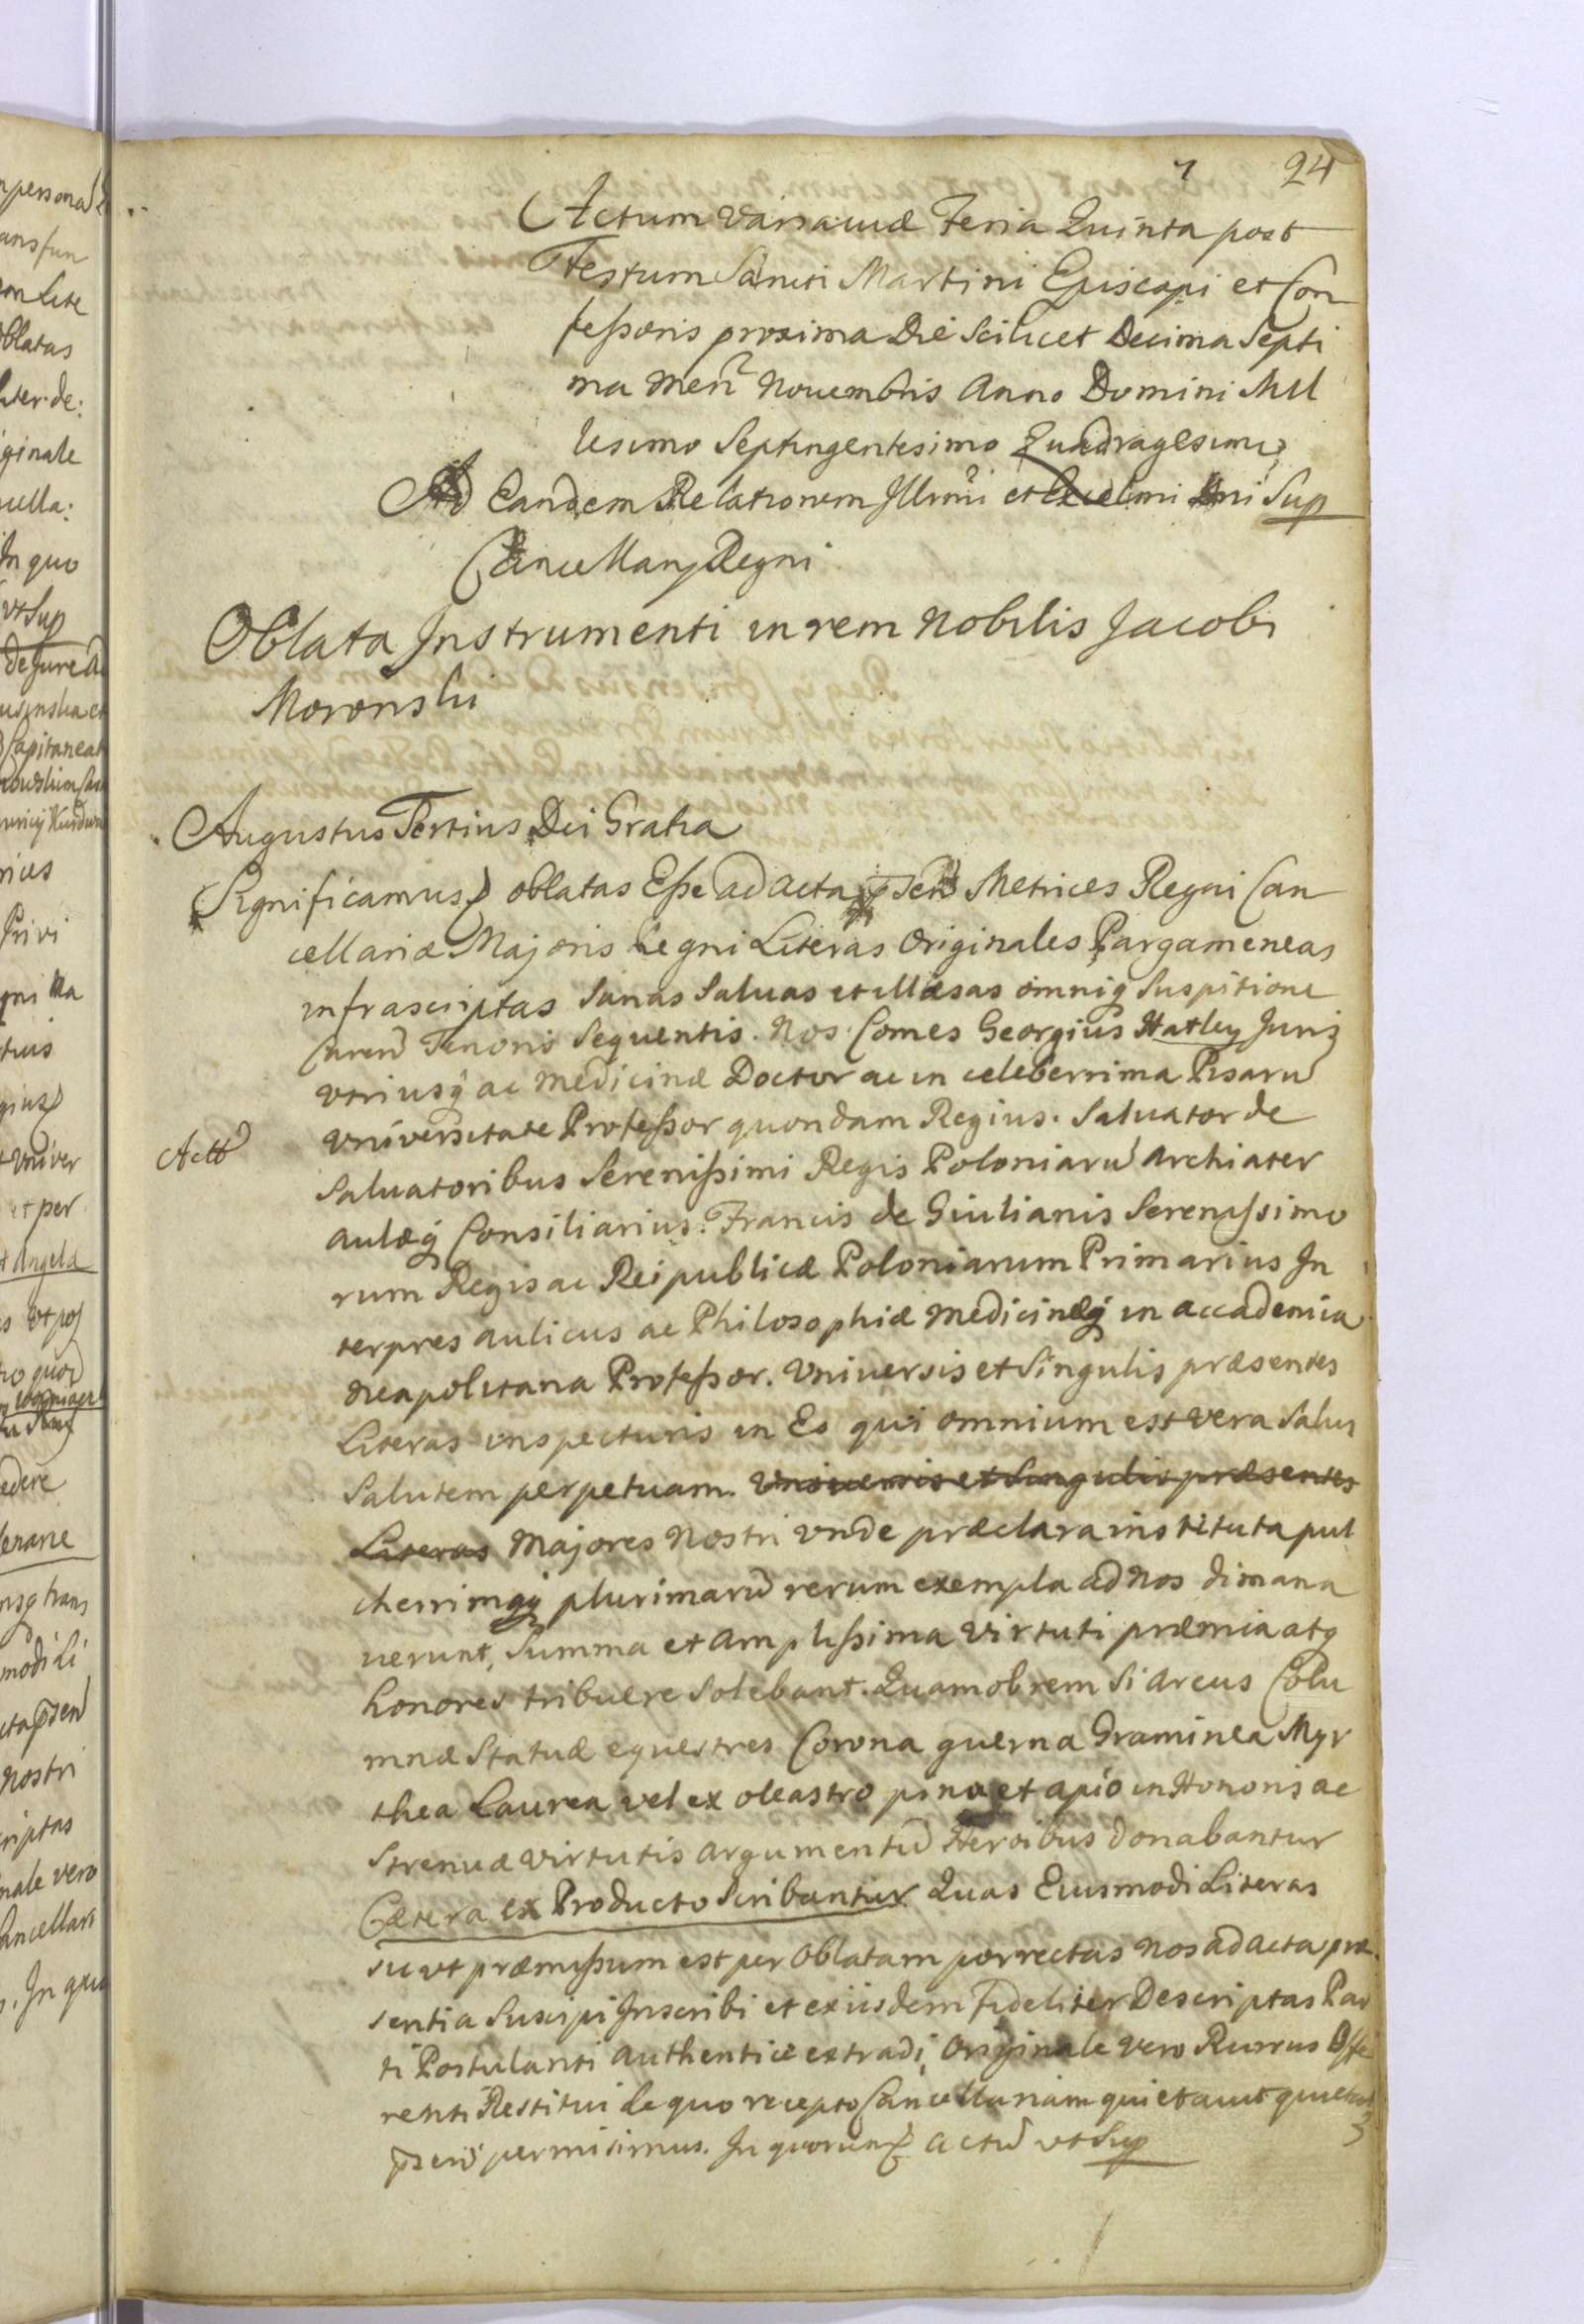 24
Actum Varsaviæ Feria Quinta post
Festum Sancti Martini Episcopi et Con
feßoris proxima Die Scilicet Decima Septi
ma Men Novembris Anno Domini Mil
lesimo Septingentesimo Quadragesimo
Ad Eandem Relationem Illmi et Excelmi Dni Sup
Cancellary Regni
Oblata Instrumenti in rem Nobilis Jacobi
Moronski
Augustus Tertius Dei Gratia
Significamus oblatas Eße ad acta psen Metrices Regni Can
cellariæ Majoris Regni Literas Originales Pargameneas
infrascriptas Sanas Salvas et illæsas omniq Suspitione
Caren Tenoris Sequentis. Nos Comes Georgius Hatley Juris
vtriusq ac Medicinæ Doctor ac in celeberrima Pisaru
Vniversitate Profeßor quondam Regius. Saluator de
Actt
Saluatoribus Serenißimi Regis Poloniaru Archiater
aulæq Consiliarius. Francis de Giulianis Serenissimo
rum Regis ac Reipublicæ Poloniarum Primarius In
terpres aulicus ac Philosophiæ Medicinæq in accademia
Neapolitana Profeßor. Vniversis et Singulis præsentes
Literas inspecturis in Eo qui omnium est vera Salus
Salutem perpetuam. Vniversis et Singulis præsentes
Literas Majores Nostri vnde præclara instituta pul
cherrimaq plurimaru rerum exempla ad nos dimana
uerunt, Summa et amplißima virtuti præmia atq
honores tribuere Solebant. Quamobrem Si Arcus Colu
mnæ Statuæ equestres Corona querna Graminea Myr
thea Laurea vel ex oleastro pino et apio in Honoris ac
Strenuæ virtutis argumentu Heroibus donabantur
Cætera ex Producto Scribantur Quas Eiusmodi Literas
suvt præmißum est per Oblatam porrectas Nos ad acta præ
sentia Suscipi Inscribi et exiisdem Fideliter Descriptas Par
ti Postulanti Authentice extradi, Originale vero Rursus Offe
renti Restitui de quo recepto Cancellariam quietavit quietat
psen permisimus. In quorum actu vt Sup